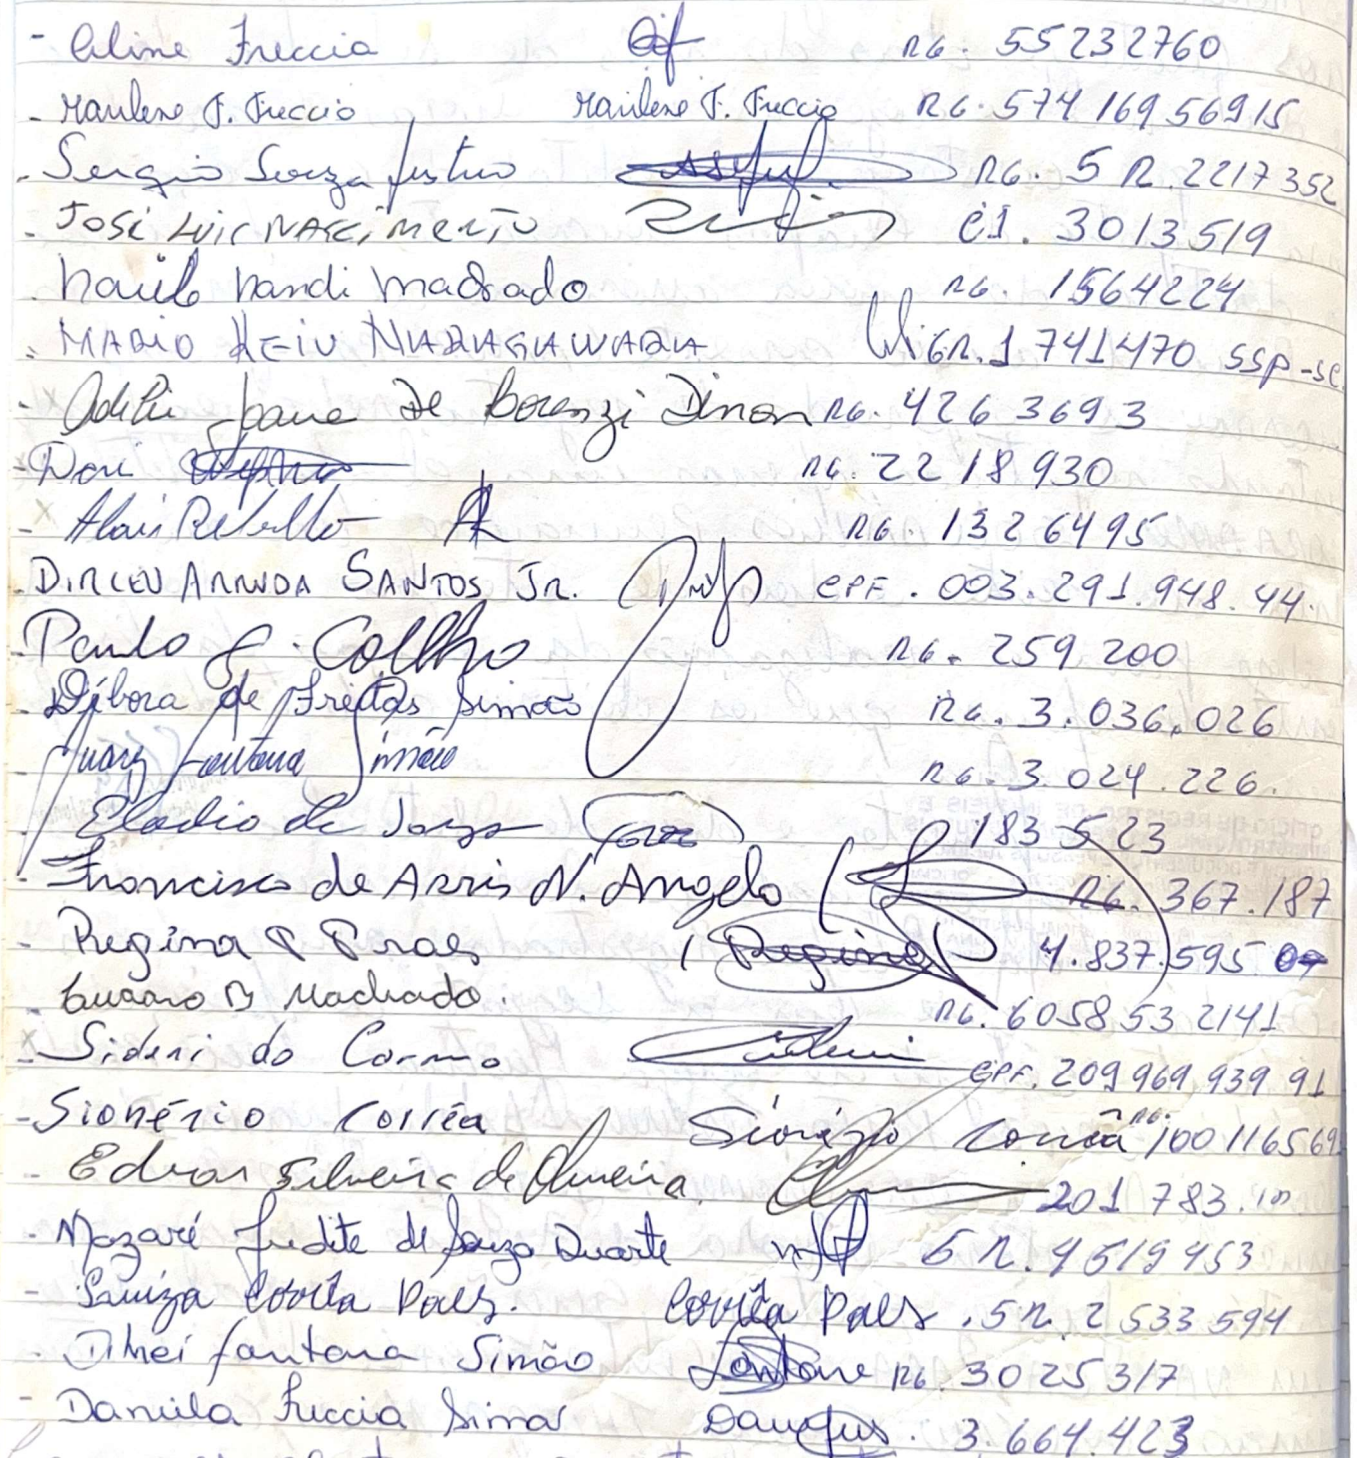 - Aline Freccia RG. 55232760
- Marilene F. Freccia Marilene F. Freccia RG. 574 169 56915
- Sergio Souza Justino RG. 5 R. 2217352
- José Luiz Nascimento C1. 3013519
- Nandi Machado RG. 1564224
- MARIO KEIU NAKAGAWARA GR. 1741470 SSP-SC
- Joane De Borenzi Dinon RG. 4263693
- RG. 2218930
- Rebello AR RG. 1326495
- DIRCEU ARRUDA SANTOS JR. CPF. 003.291.948.44.
- Paulo Coelho RG. 259.200
- Débora de Freitas Simão RG. 3.036.026
Juarez Fontana Simão RG. 3.024.226.
- Eladio de Souza 183523
- Francisco de Assis N. Angelo RG. 367.187
- Regina P Praes Regina 4.837.595
B Machado. RG. 6058532141
- Sideni do Carmo Sideni CPF. 209 969 939 91
- Sionério Corrêa Sionério Corrêa RG. 1001165691
- Edson Silveira de Oliveira 201 783.
- Nazaré Judite de Souza Duarte 5 R. 4519453
- Luiza Corrêa Paes. Corrêa Paes . 5 R. 2533594
- Fontana Simão Fontana RG. 3025317
- Daniela Freccia Simão 3.664.423